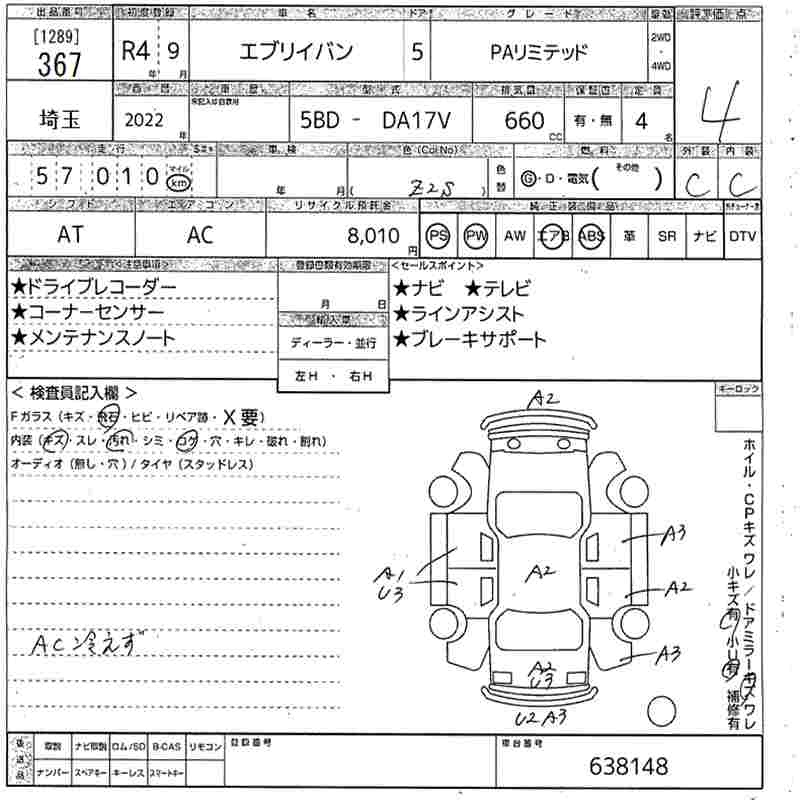 出品番号 初度登録 車名 ドア グレード 駆動 評価点
[1289]
367 R4年 9月 エブリイバン 5 PAリミテッド 2WD・4WD
4
車歴 型式 排気量 保証書 定員
埼玉 2022年 5BD - DA17V 660cc 有・無 4名
走行 車検 色(ColNo) 燃料 外装 内装
57,010 マイル km 年 月( Z2S ) 色替 G・D・電気( その他 ) C C
シフト エアコン リサイクル預託金 純正装備品
AT AC 8,010円 PS PW AW エアB ABS 革 SR ナビ DTV
<注意事項> 登録書類有効期限 <セールスポイント>
★ドライブレコーダー ★ナビ ★テレビ
★コーナーセンサー 月 日 ★ラインアシスト
★メンテナンスノート 輸入車 ★ブレーキサポート
ディーラー・並行
左H ・ 右H
< 検査員記入欄 > キーロック
Fガラス(キズ・飛石・ヒビ・リペア跡・X要)
内装(キズ・スレ・汚れ・シミ・コゲ・穴・キレ・破れ・割れ)
オーディオ(無し・穴)/タイヤ(スタッドレス)
A2
A3
A1
U3
A2
A2
A3
A2
U3
U2 A3
AC冷えず
ホイル・CPキズワレ/ドアミラーキズワレ
小キズ有 小U有 補修有
後送品 取説 ナビ取説 ロム/SD B-CAS リモコン 登録番号 車台番号
ナンバー スペアキー キーレス スマートキー 638148